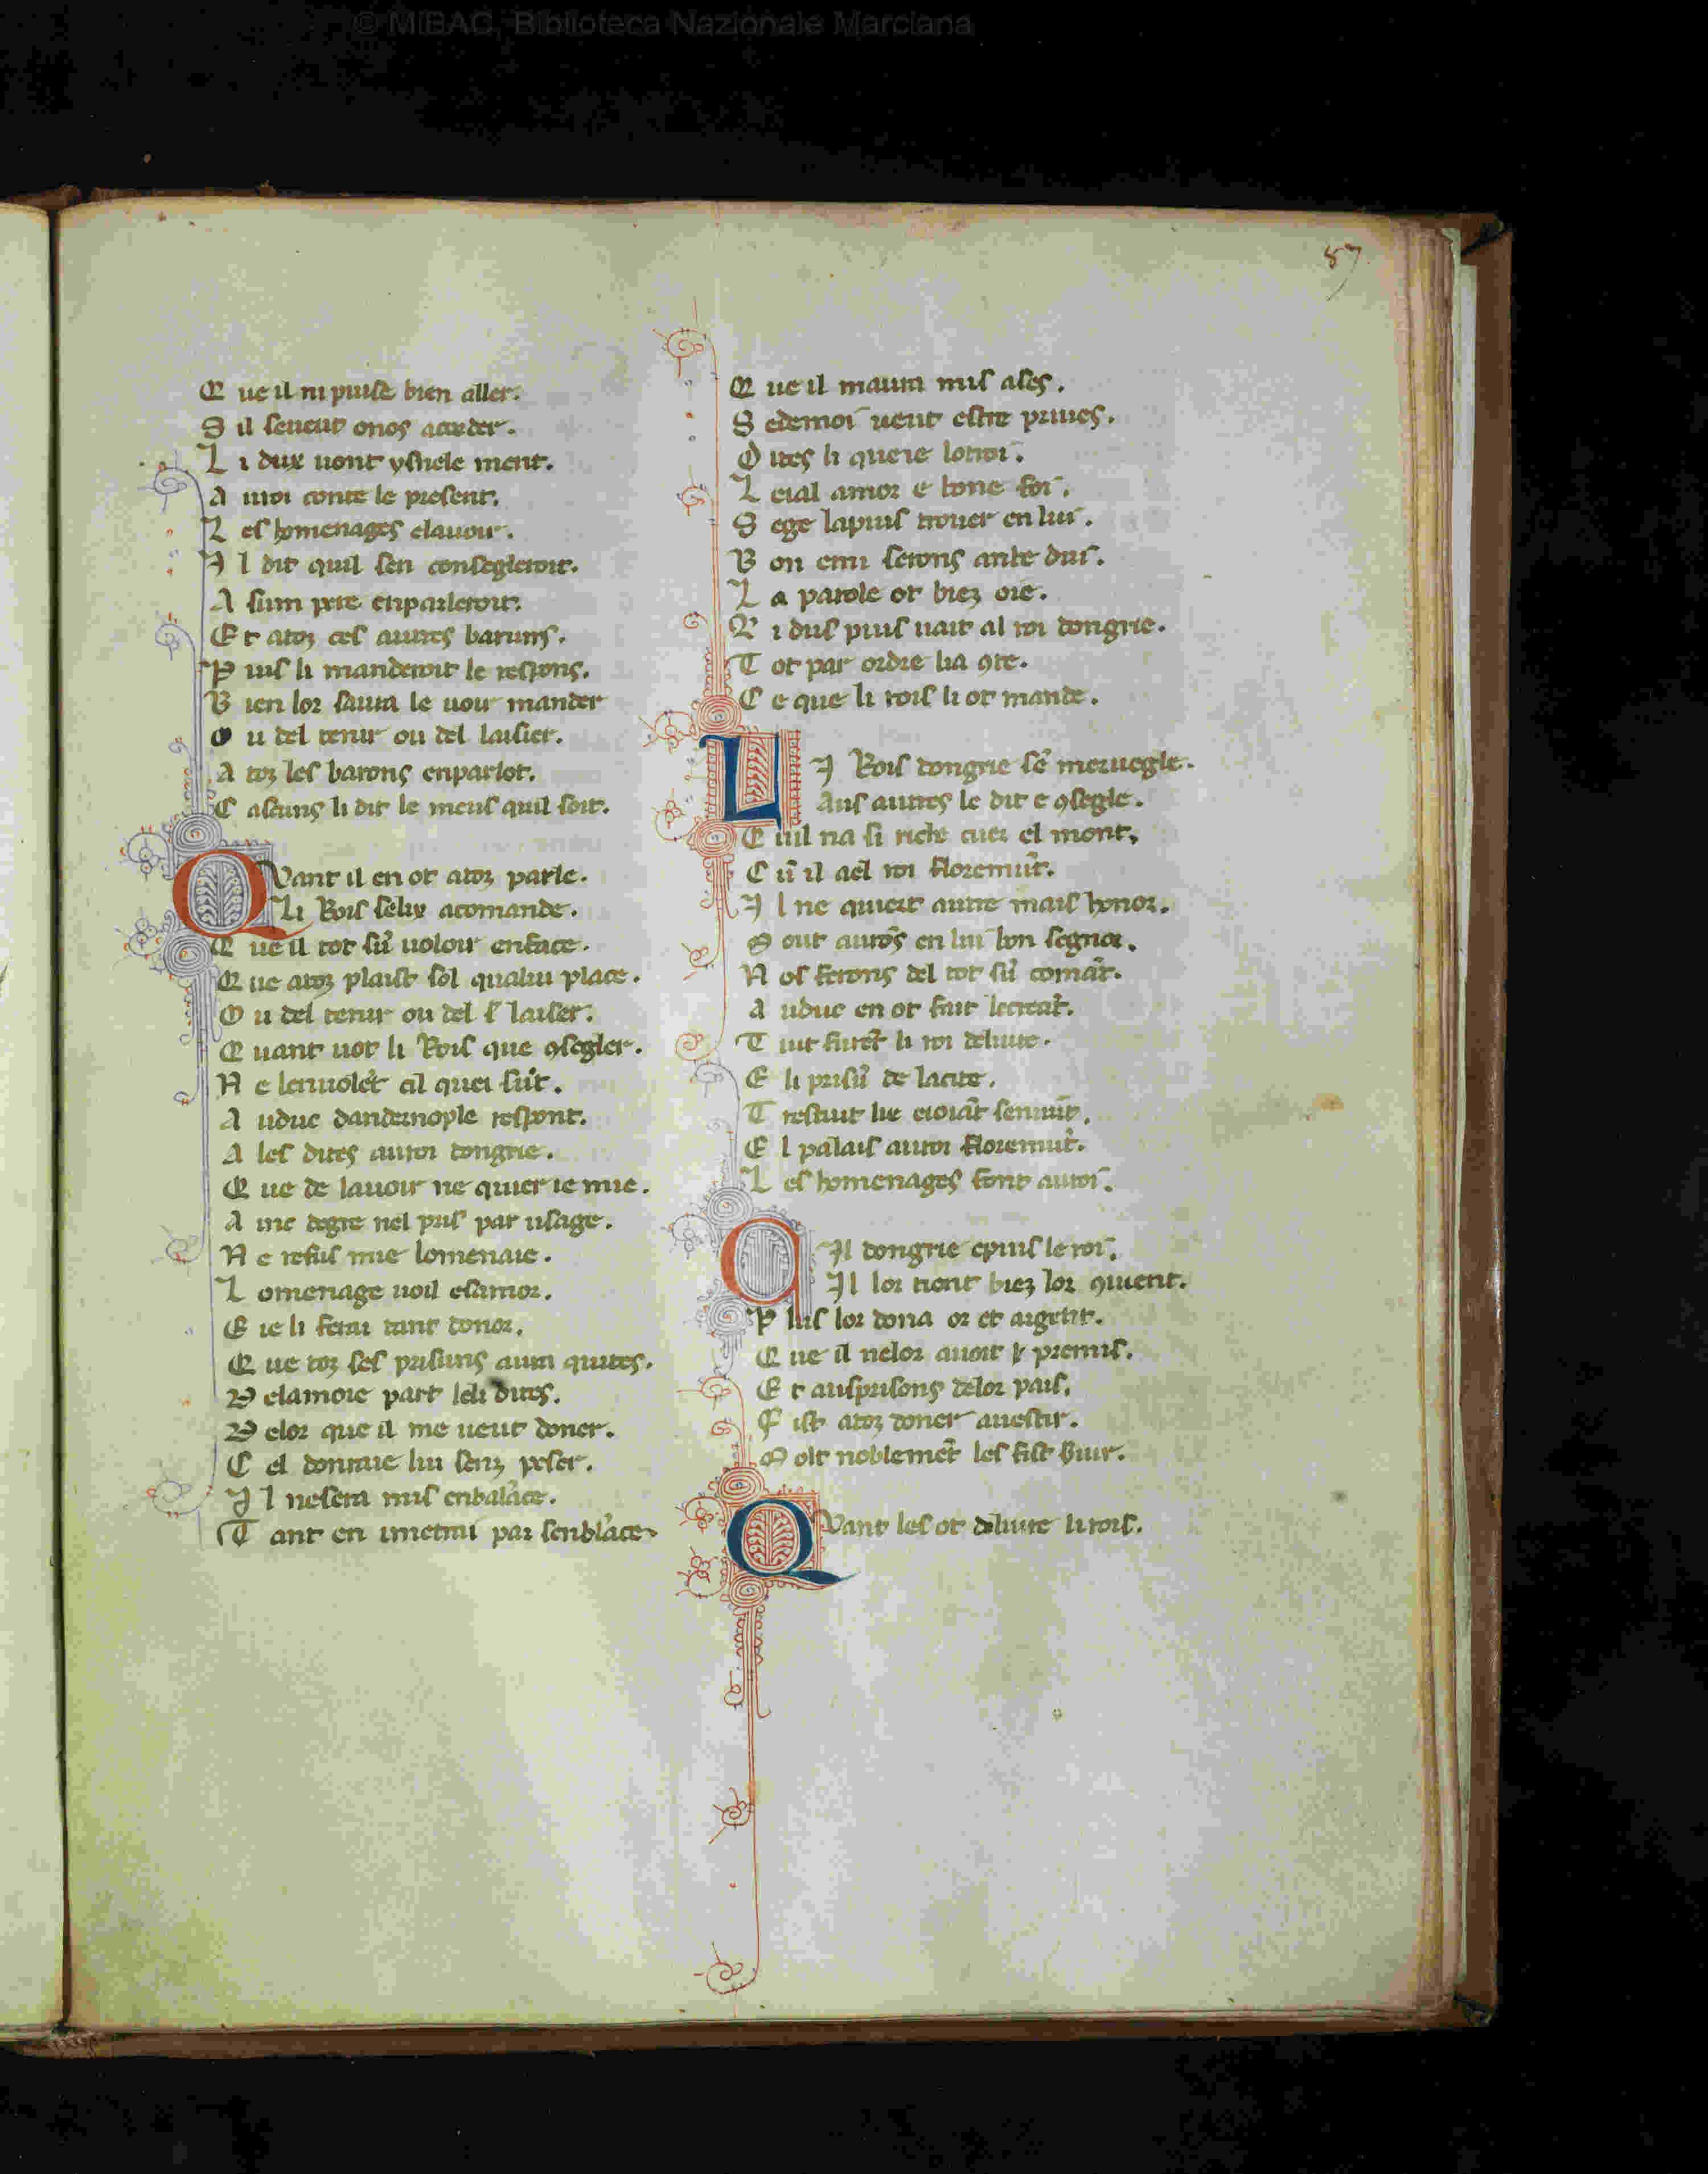 © MiBAC, Biblioteca Nazionale Marciana
87
Q ue il ni puise bien aller.
S il seueut onoſ acorder.
L i dux uont yſnele ment.
A uroi conte le present.
L eſ homenages elauoir.
I l dit quil sen consegleroit.
A sum pere enparleroit.
Et atoz ceſ autres baruns.
P uiſ li manderoit le respons.
B ien lor saura le uoir mander
O u del tenir ou del laisier.
A toz leſ barons enparlot.
C ascuns li dit le meuſ quil soit.
Quant il en ot atoz parle.
Li Roiſ felix acomande.
Q ue il tot sū uoloir enface.
Q ue atoz plaist sol qualui place.
O u del tenir ou del ſ laiser.
Q uant uot li Roiſ que ꝯsegler.
N e leruolēt cil quei sūt.
A uduc dandernople respont.
A leſ dites auroi dongrie.
Q ue de lauoir ne quier ie mie.
A me degre nel priſ par usage.
N e refuſ mie lomenaie.
L omenage uoil esamor.
E ie li ferai tant donor.
Q ue toz seſ prisuns aura quites.
D elamoie part leli dites.
D elor que il me ueut doner.
C el donraie lui senz peser.
I l nesera miſ enbalāce.
T ant en imetrai par senblāce
Q ue il maura miſ ases.
S edemoi ueut estre priues.
D ites li queie lotroi.
L eial amor e bone foi.
S ege lapuiſ trouer en lui.
B on emi serons ante dui.
L a parole ot biez oie.
L i duſ puiſ uait al roi dongrie.
T ot par ordre lia ꝯte.
C e que li roiſ li ot mande.
LI Roiſ dongrie sē meruegle.
Auſ autres le dit e ꝯsegle.
Q uil na si riche cuer el mont.
C ū il ael roi floremūt.
I l ne quiert autre maiſ honor.
M out aurōs en lui bon segnor.
N oſ ferons del tot sū comāt.
A uduc en ot fait lecreāt.
T uit furēt li roi deliure.
E li prisū de lacite.
E l palaiſ auroi floremūt.
L eſ homenages font auroi.
Cil dongrie epuiſ le roi.
Il lor tiont biez lor ꝯuent.
P luſ lor dona or et argent.
Q ue il nelor auoit ꝑ premiſ.
E t auſprisons delor paiſ.
F ist atoz doner auestir.
M olt noblemēt leſ fist ſuir.
Quant leſ ot deliure li roiſ.